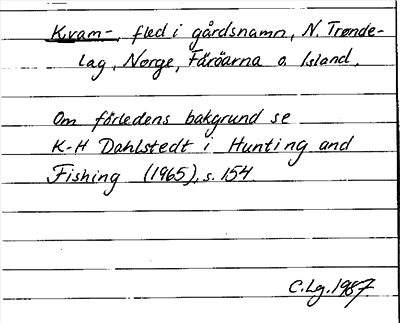 Kvam-, fled i gårdsnamn, N. Trønde-
lag, Norge, Färöarna o. Island.
Om förledens bakgrund se
K-H Dahlstedt i Hunting and
Fishing (1965), s. 154.
C. Lg. 1987.